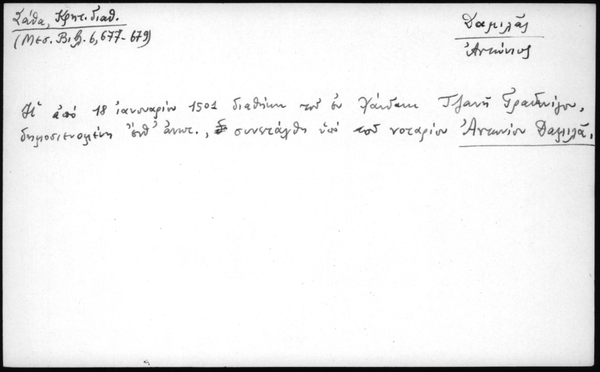 Σάθα, Κρητ. διαθ.
(Μεσ. Βιβ. 6, 677-679)
Δαμιλᾶς
Ἀντώνιος
Ἡ ἀπό 18 ἰανουαρίου 1501 διαθήκη τοῦ ἐν Χάνδακι Τζανῆ Γραδνίγου,
δημοσιευομένη ἐνθ' ἀνωτ., συνετάχθη ὑπό τοῦ νοταρίου Ἀντωνίου Δαμιλᾶ.